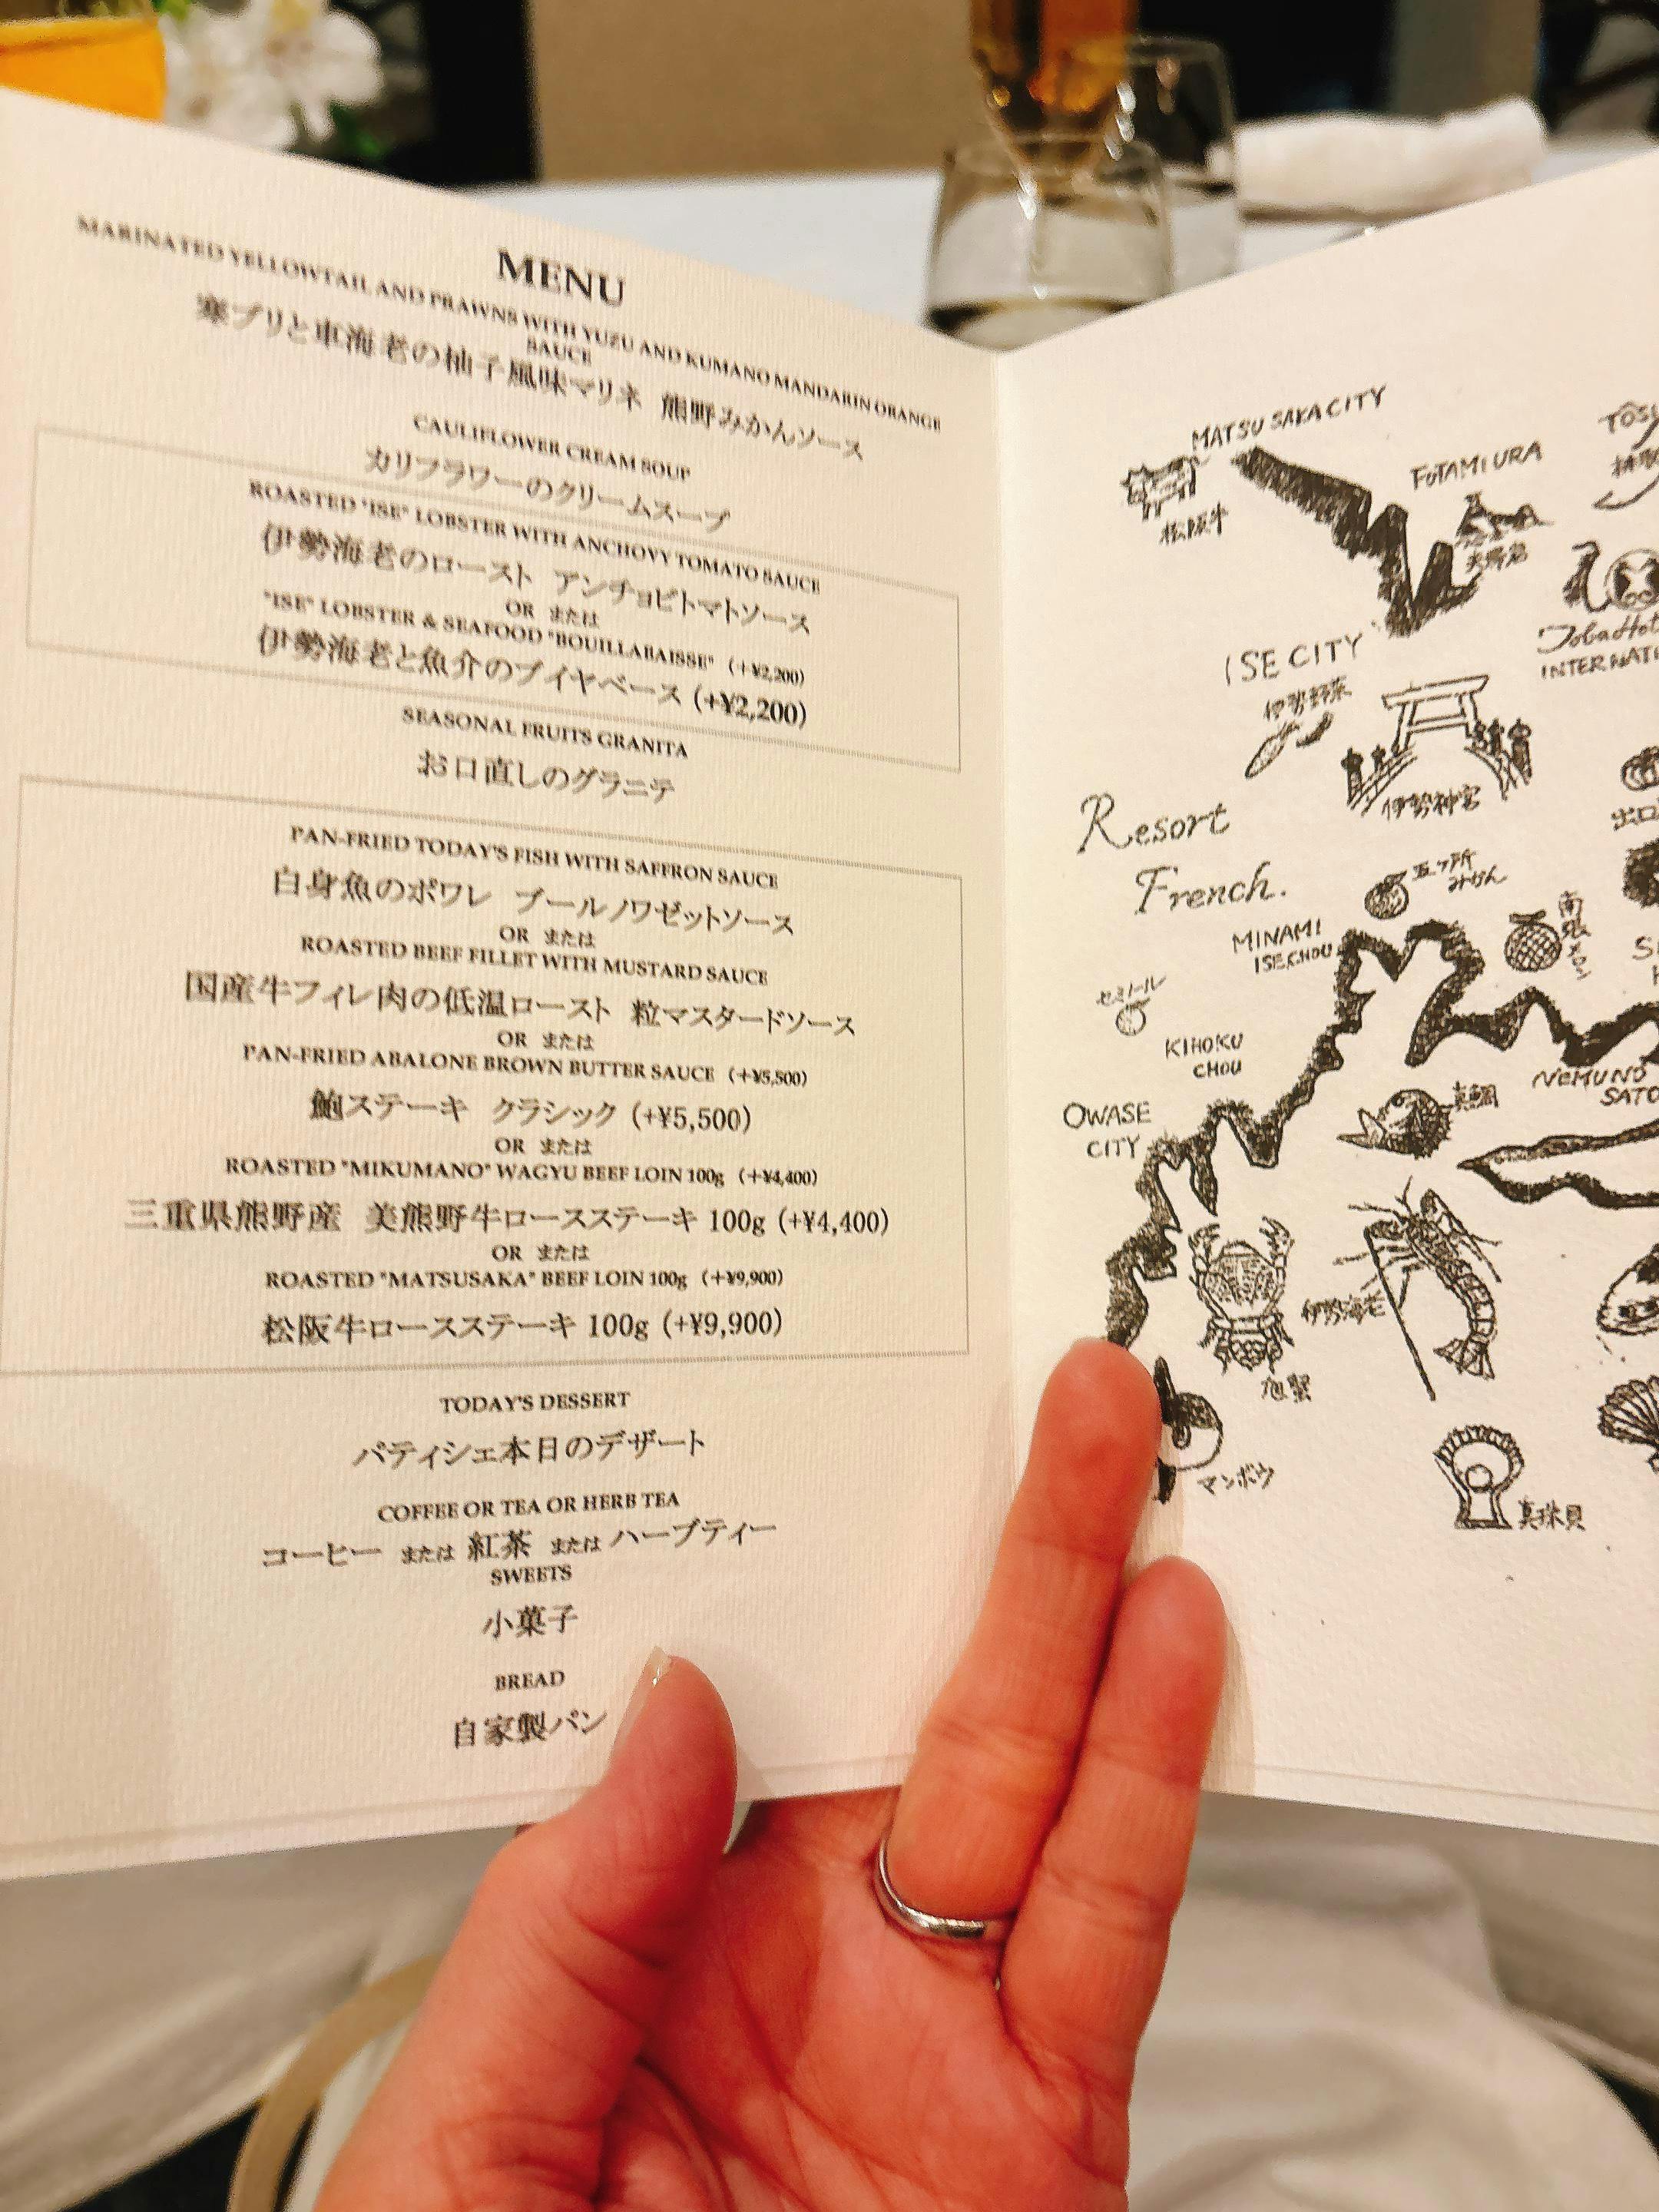 MENU
MARINATED YELLOWTAIL AND PRAWNS WITH YUZU AND KUMANO MANDARIN ORANGE
SAUCE
寒ブリと車海老の柚子風味マリネ 熊野みかんソース
CAULIFLOWER CREAM SOUP
カリフラワーのクリームスープ
ROASTED "ISE" LOBSTER WITH ANCHOVY TOMATO SAUCE
伊勢海老のロースト アンチョビトマトソース
OR または
"ISE" LOBSTER & SEAFOOD "BOUILLABAISSE" (+¥2,200)
伊勢海老と魚介のブイヤベース (+¥2,200)
SEASONAL FRUITS GRANITA
お口直しのグラニテ
PAN-FRIED TODAY'S FISH WITH SAFFRON SAUCE
白身魚のポワレ ブールノワゼットソース
OR または
ROASTED BEEF FILLET WITH MUSTARD SAUCE
国産牛フィレ肉の低温ロースト 粒マスタードソース
OR または
PAN-FRIED ABALONE BROWN BUTTER SAUCE (+¥5,500)
鮑ステーキ クラシック (+¥5,500)
OR または
ROASTED "MIKUMANO" WAGYU BEEF LOIN 100g (+¥4,400)
三重県熊野産 美熊野牛ロースステーキ 100g (+¥4,400)
OR または
ROASTED "MATSUSAKA" BEEF LOIN 100g (+¥9,900)
松阪牛ロースステーキ 100g (+¥9,900)
TODAY'S DESSERT
パティシェ本日のデザート
COFFEE OR TEA OR HERB TEA
コーヒー または 紅茶 または ハーブティー
SWEETS
小菓子
BREAD
自家製パン
MATSUSAKA CITY
松阪牛
FUTAMIURA
夫婦岩
ISE CITY
伊勢野菜
伊勢神宮
Resort
French.
五ヶ所
みかん
MINAMI
ISE,CHOU
南張メロン
セミノール
KIHOKU
CHOU
NEMUNO
SATO
真鯛
OWASE
CITY
伊勢海老
旭蟹
マンボウ
真珠貝